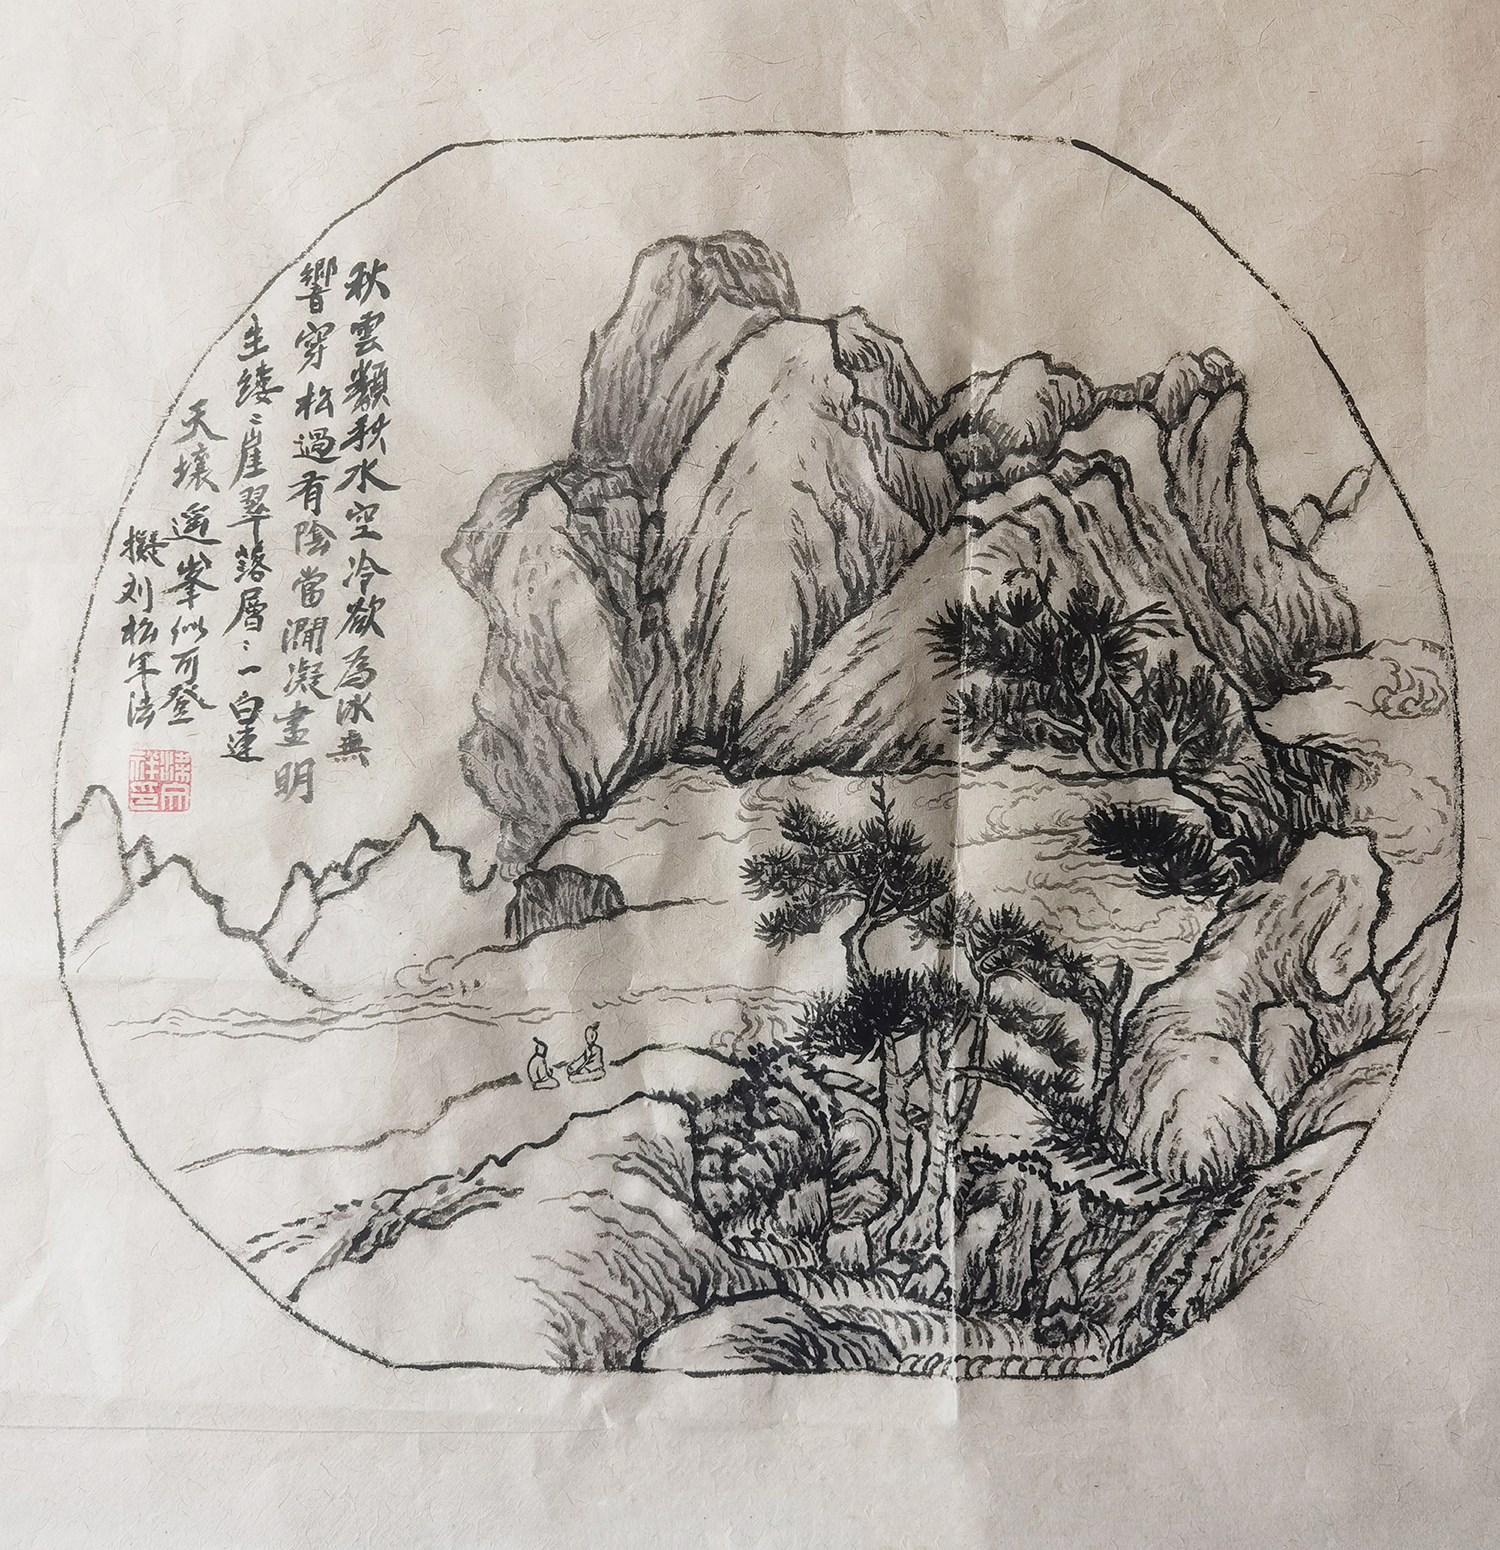 秋雲類秋水空冷欲為冰無
響穿松過有陰當澗凝畫明
生縷〻崖翠落層〻一白連
天壤遥峯似可登
擬刘松年法